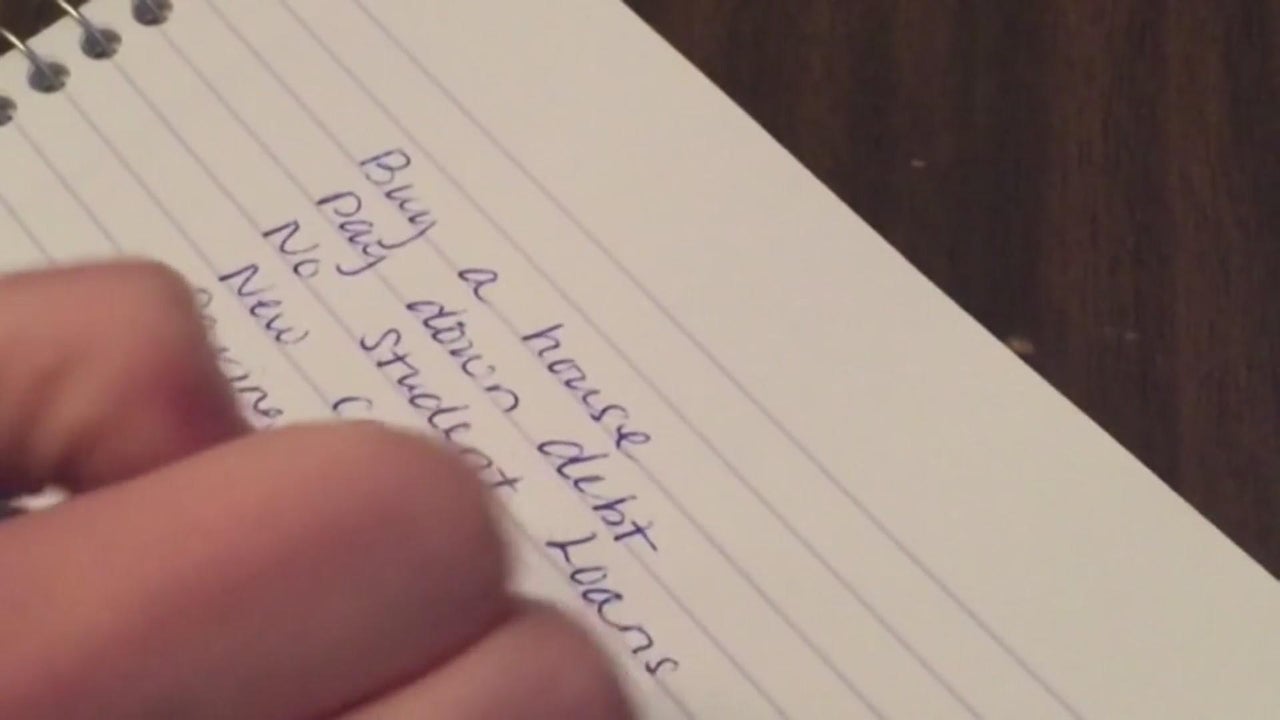 Buy a house
Pay down debt
No Student Loans
New